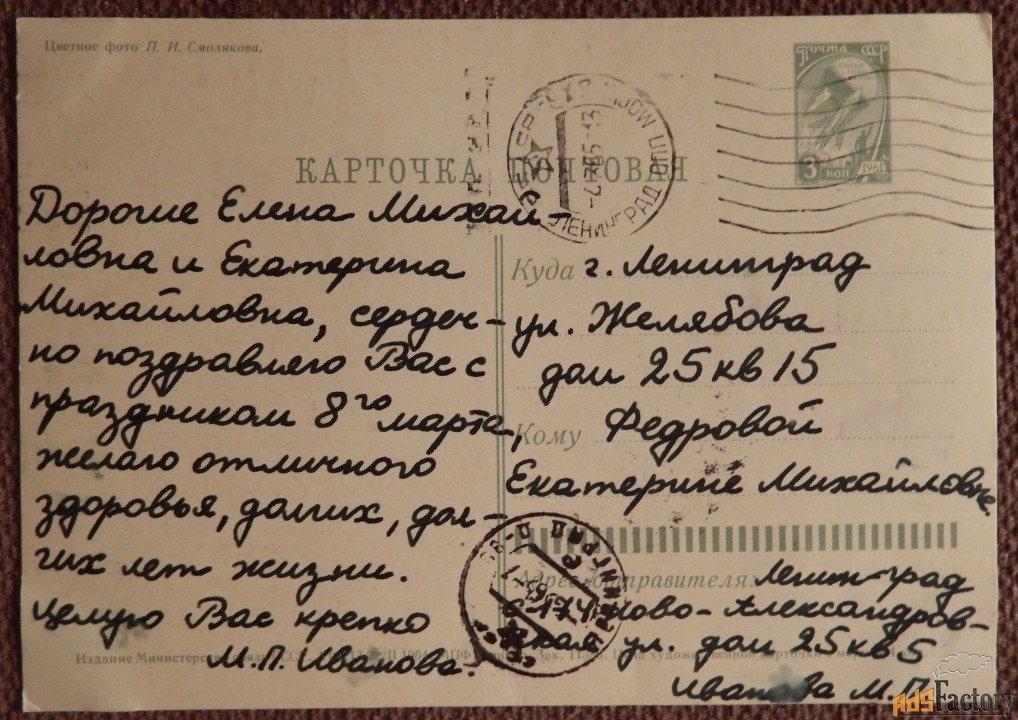 Цветное фото П. И. Смолякова.
Почта СССР
3 коп 1961
КАРТОЧКА ПОЧТОВАЯ
ЛЕНИНГРАД
Дорогие Елена Михай-
ловна и Екатерина
Михайловна, сердеч-
но поздравляю Вас с
праздником 8го марта,
желаю отличного
здоровья, долгих, дол-
гих лет жизни.
Целую Вас крепко
М.П. Иванова.
Куда г. Ленинград
ул. Желябова
дом 25 кв 15
Кому Федровой
Екатерине Михайловне.
Адрес отправителя: Ленинград
ново-Александров-
ская ул. дом 25 кв 5
Иванова М.П.
Издание Министерства связи
1964
Зак.
художественной карточки
AdsFactory